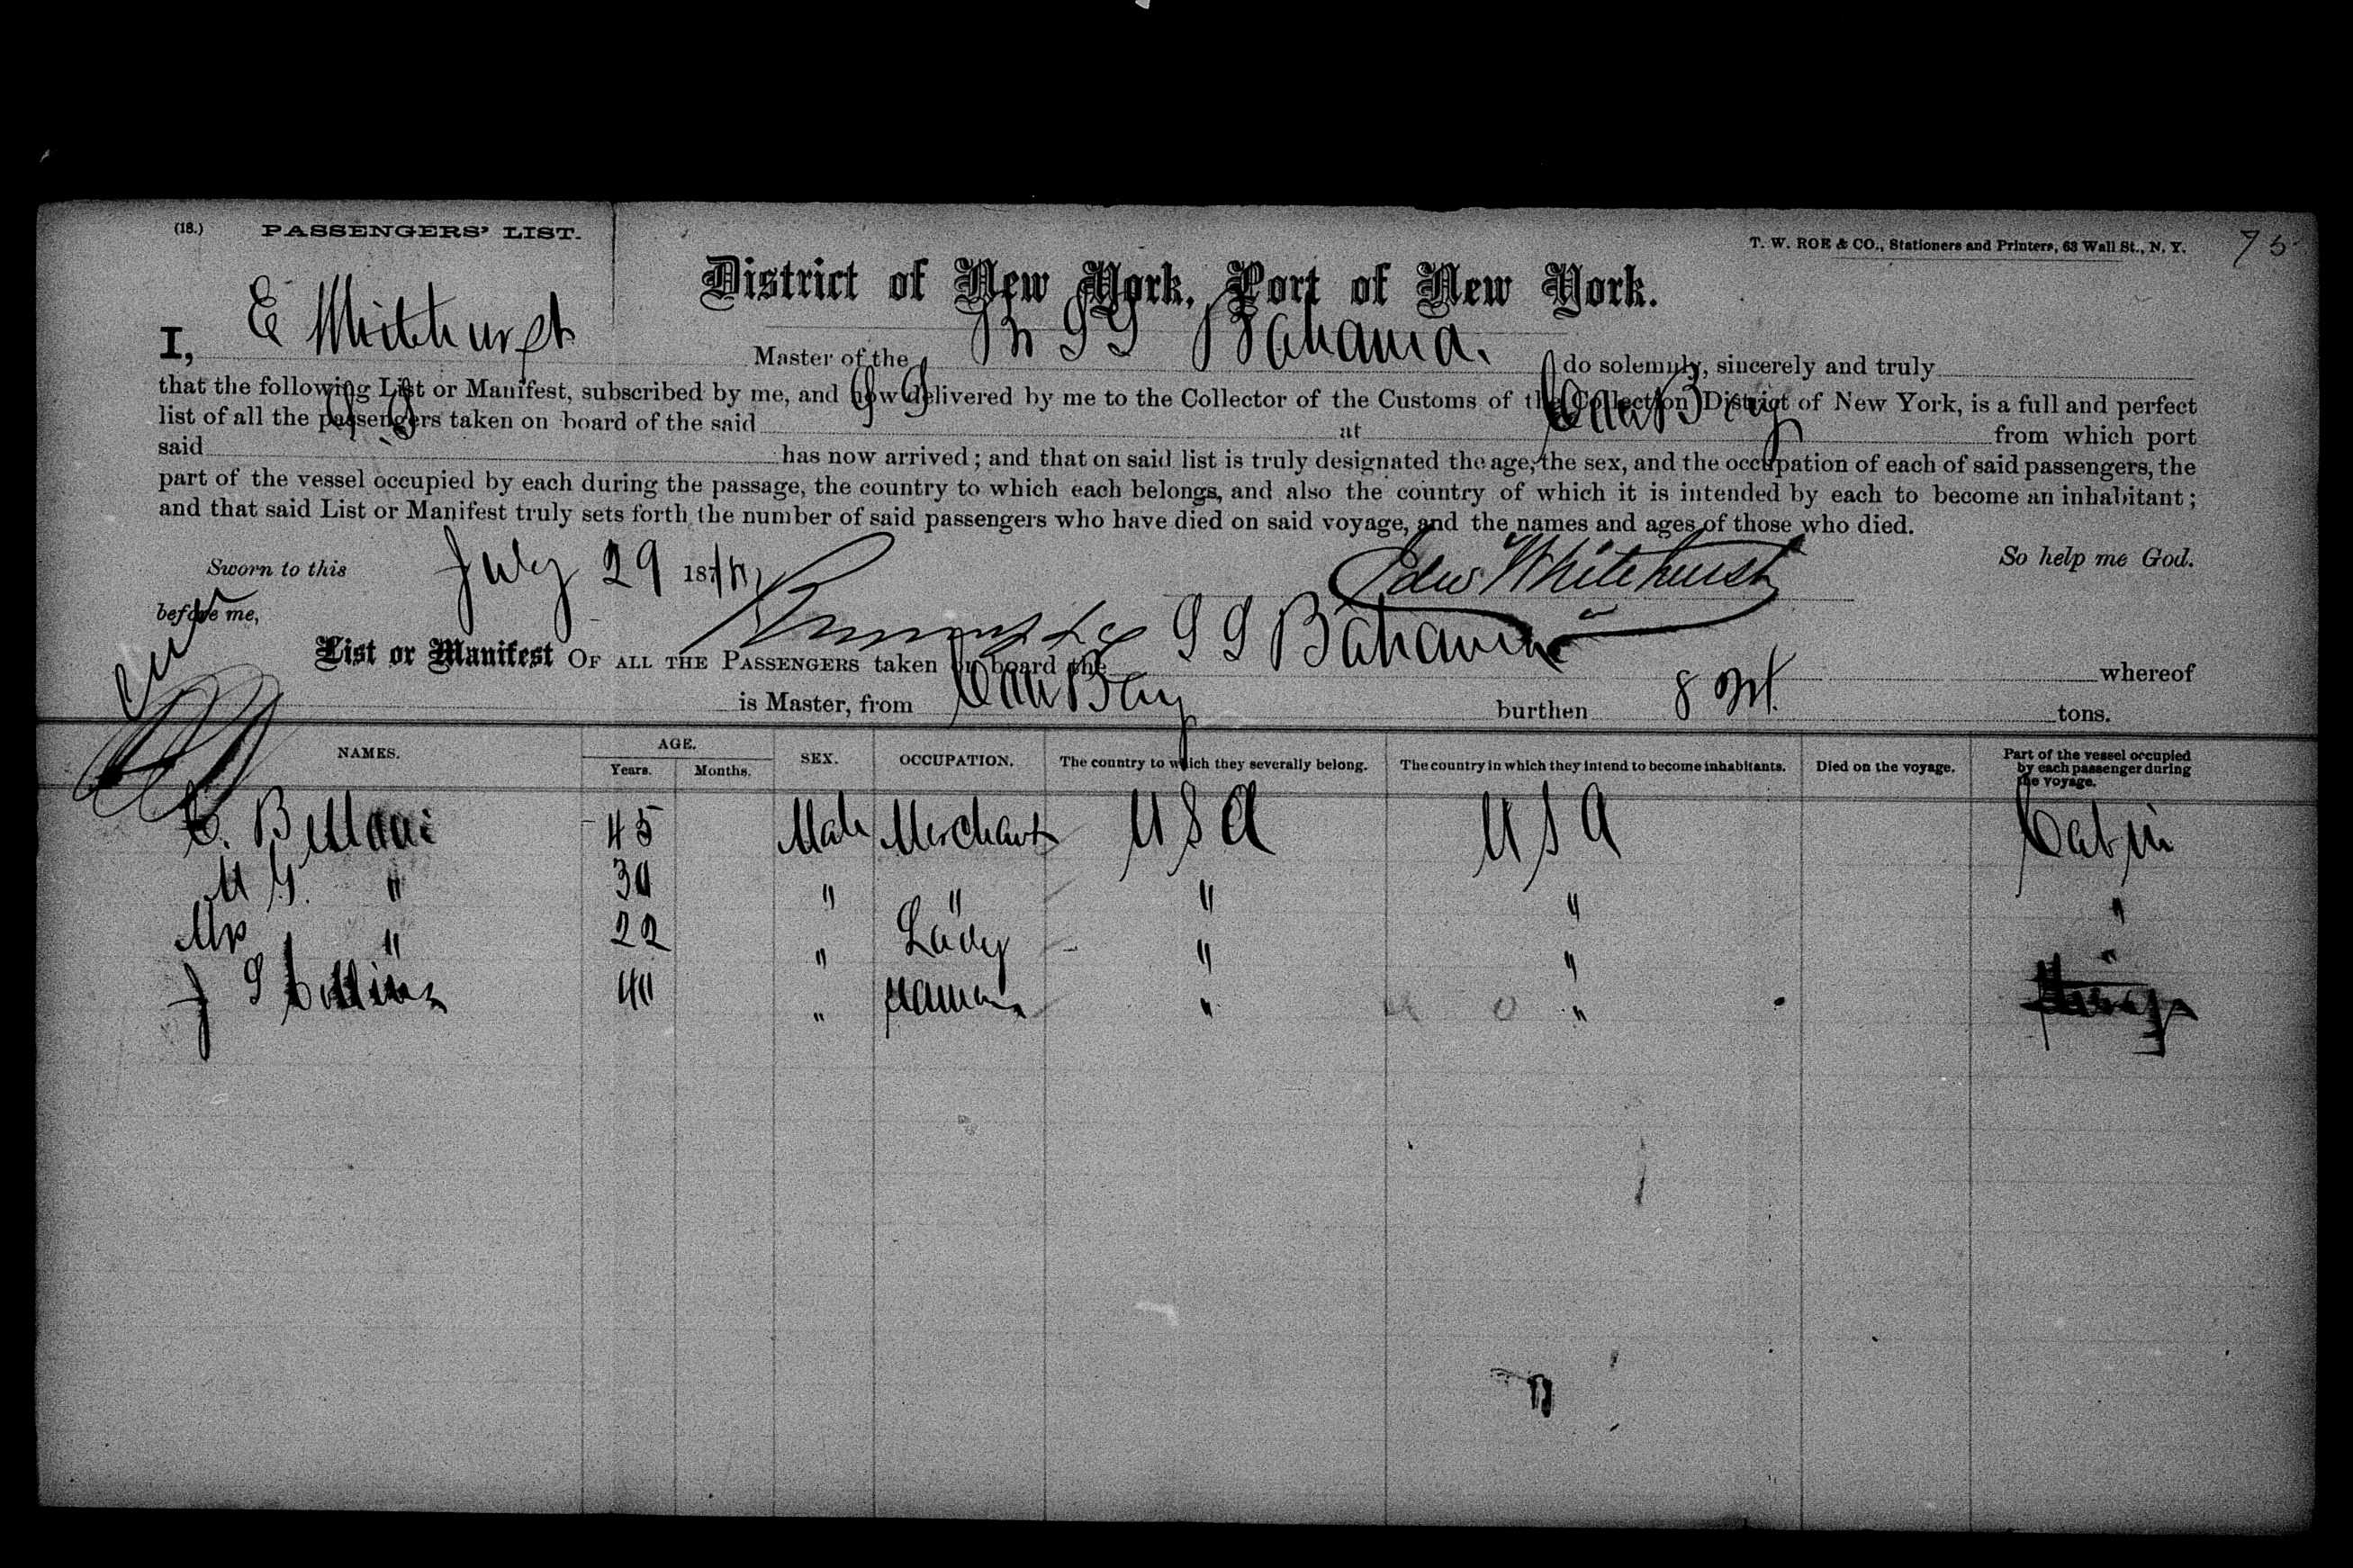 (18.) PASSENGERS' LIST.
T. W. ROE & CO., Stationers and Printers, 63 Wall St., N. Y.
75
District of New York, Port of New York.
I, E Whitehurst Master of the Br SS Bahama. do solemnly, sincerely and truly
that the following List or Manifest, subscribed by me, and now delivered by me to the Collector of the Customs of the Collection District of New York, is a full and perfect
list of all the passengers taken on board of the said SS at Bay from which port
said SS has now arrived; and that on said list is truly designated the age, the sex, and the occupation of each of said passengers, the
part of the vessel occupied by each during the passage, the country to which each belongs, and also the country of which it is intended by each to become an inhabitant;
and that said List or Manifest truly sets forth the number of said passengers who have died on said voyage, and the names and ages of those who died.
So help me God.
Sworn to this July 29 18
Edw Whitehurst
before me,
List or Manifest OF ALL THE PASSENGERS taken on board the SS Bahama whereof
is Master, from Bay burthen tons.
NAMES. AGE. Years. Months. SEX. OCCUPATION. The country to which they severally belong. The country in which they intend to become inhabitants. Died on the voyage. Part of the vessel occupied by each passenger during the voyage.
45 Male Merchant USA USA Cabin
M G. " 30 " " " " "
Mrs " 22 " Lady " " "
J S Collins 40 " " "